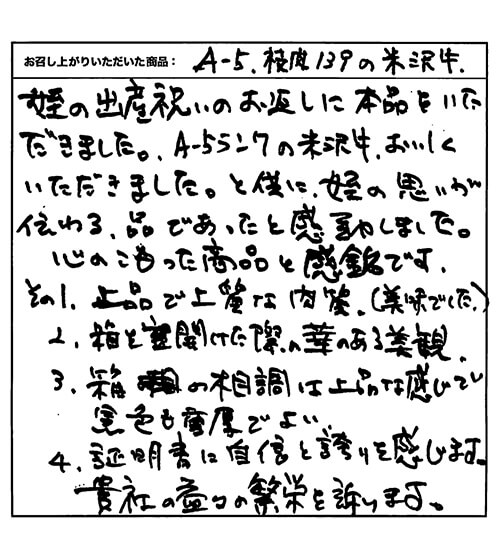 お召し上がりいただいた商品： A-5.枝肉139の米沢牛.
姪の出産祝いのお返しに本品をいた
だきました。A-5ランクの米沢牛.おいしく
いただきました。と供に、姪の思いが
伝わる、品であったと感動しました。
心のこもった商品と感銘です.
その1. 上品で上質な肉質.(美味でした.)
2. 箱を開けた際の華のある美観.
3. 箱の相調は上品な感じでい
色も重厚でよい
4. 証明書に自信と誇りを感じます.
貴社の益々の繁栄を祈ります。